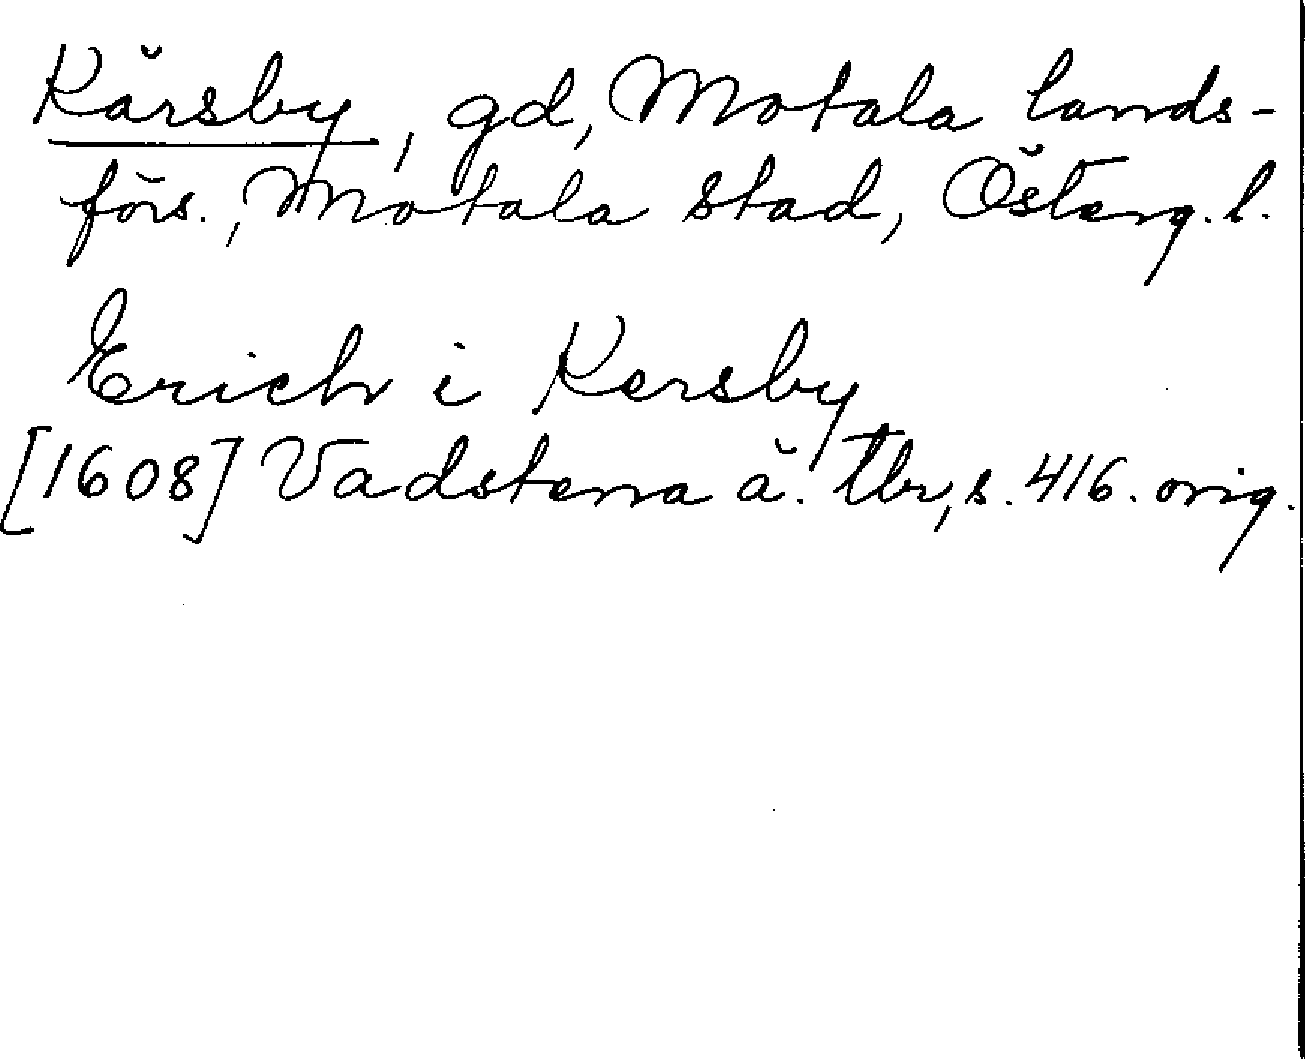 Kärsby, gd, Motala lands-
förs., Motala stad, Österg. l.
Erich i Kersby
[1608] Vadstena ä. tbr, s. 416. orig.